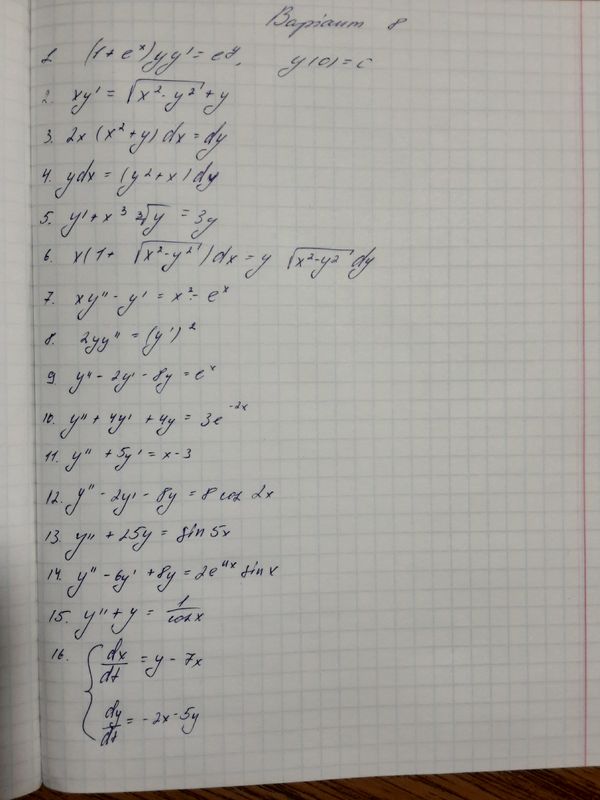 Варіант 8
1. (1+e^x)yy' = e^y, y(0)=c
2. xy' = √(x²-y²)+y
3. 2x(x²+y)dx=dy
4. ydx = (y2+x)dy
5. y'+x³ ³√y = 3y
6. x(1+ √(x²-y²))dx = y √(x²-y2)dy
7. xy''-y' = x²·e^x
8. 2yy'' = (y')²
9. y''-2y'-8y=e^x
10. y''+4y'+4y=3e^-2x
11. y''+5y'=x-3
12. y''-2y'-8y=8cos2x
13. y''+25y=sin5x
14. y''-6y'+8y=2e^4x sinx
15. y''+y = 1/cosx
16. { dx/dt = y-7x
dy/dt = -2x-5y